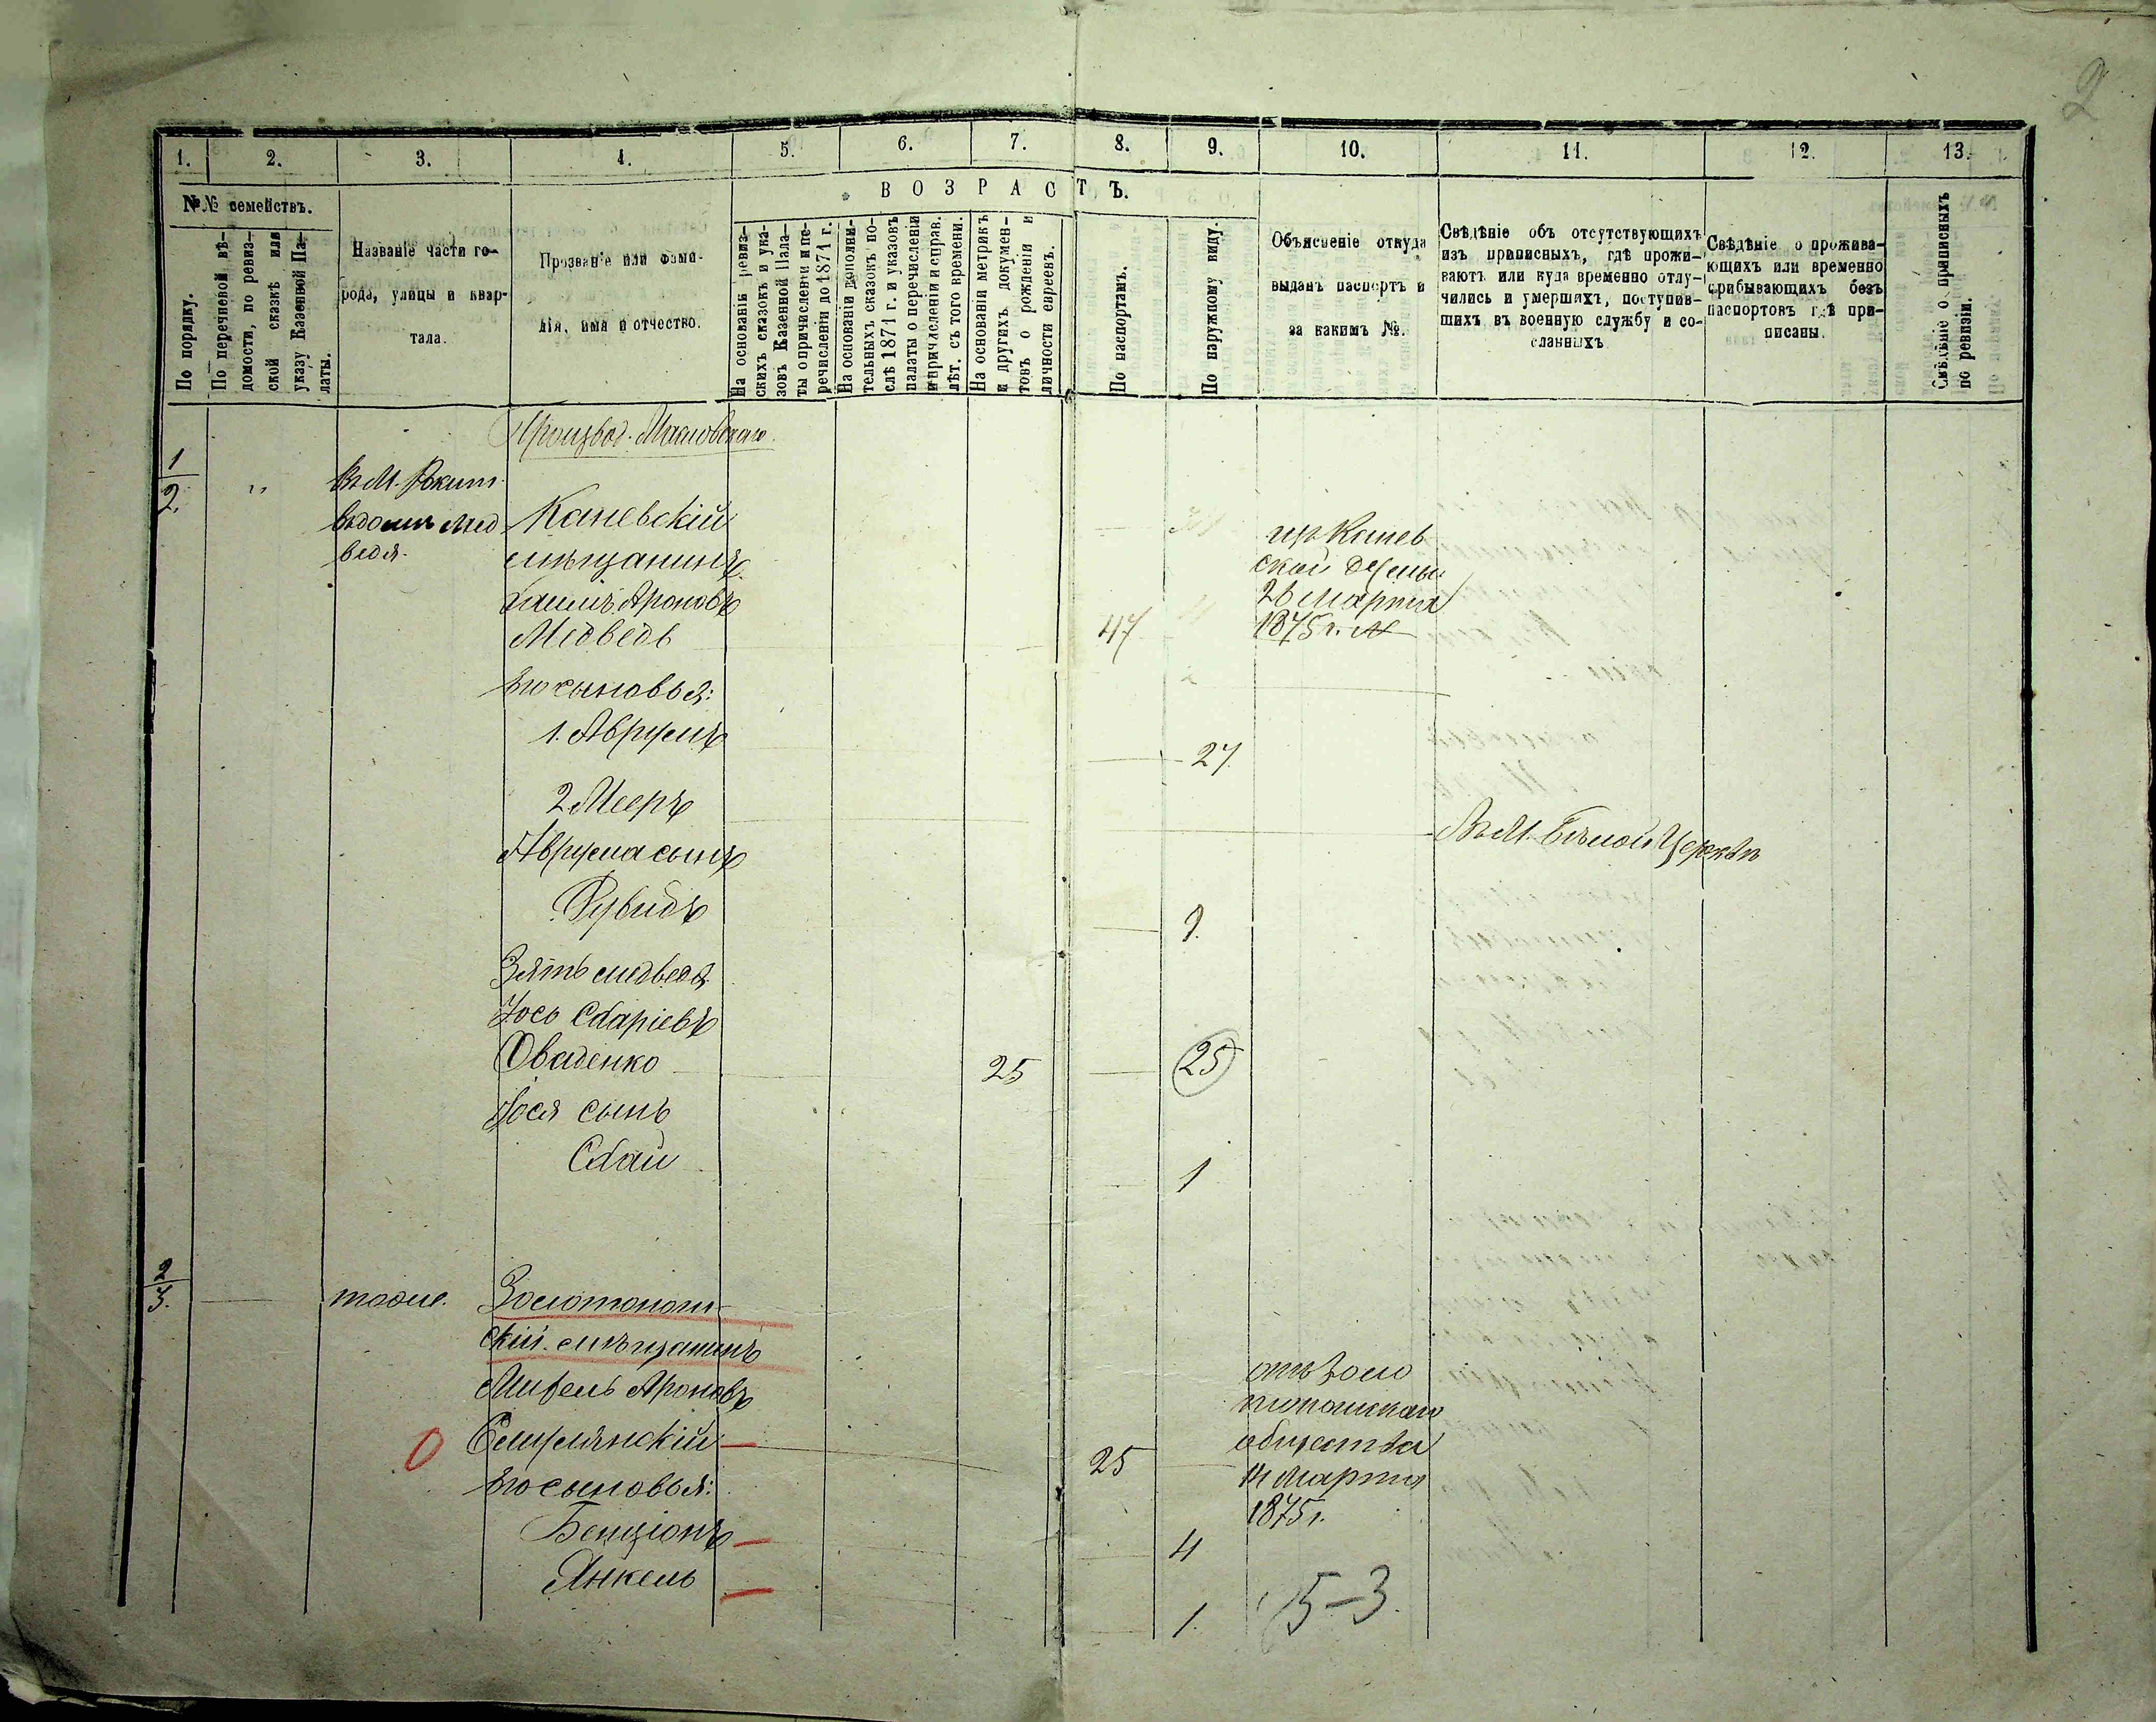 2
1. 2. 3. 4. 5. 6. 7. 8. 9. 10. 11. 12. 13.
№№ семействъ.
По порядку.
По перечневой вѣ-
домости, по ревиз-
ской сказкѣ или
указу Казенной Па-
латы.
Названіе части го-
рода, улицы и квар-
тала.
Прозваніе или фами-
лія, имя и отчество.
ВОЗРАСТЪ.
На основаніи ревиз-
скихъ сказокъ и ука-
зовъ Казенной Пала-
ты о причисленіи и пе-
речисленіи до 1871 г.
На основаніи дополни-
тельныхъ сказокъ по-
слѣ 1871 г. и указовъ
палаты о перечисленіи
и причисленіи и справ.
лѣт. съ того времени.
На основаніи метрикъ
и другихъ докумен-
товъ о рожденіи и
личности евреевъ.
По паспортамъ.
По наружному виду.
Объясненіе откуда
выданъ паспортъ и
за какимъ №.
Свѣдѣніе объ отсутствующихъ
изъ приписныхъ, гдѣ прожи-
ваютъ или куда временно отлу-
чились и умершихъ, поступив-
шихъ въ военную службу и со-
сланныхъ
Свѣдѣніе о прожива-
ющихъ или временно
прибывающихъ безъ
паспортовъ гдѣ при-
писаны.
Свѣдѣніе о приписныхъ
по ревизіи.
1
2.
"
Въ М.
Мед
ведя.
Каневскій
мѣщанинъ
Хаимъ Ароновъ
Медведь
47
Канев
ской
26 марта
1875 г. №
Его сыновья:
1. Аврумъ
27
2 Мееръ
Въ М. Бѣлой Церкви
Аврума сынъ
Рувидъ
9.
Зять медведя
Іось
Оваденко
25
25
Іося сынъ
1
2
3.
тоже.
Золотонош-
скій мѣщанинъ
Ароновъ
25
отъ Золо
тоношскаго
общества
14 Марта
1875 г.
Его сыновья:
Бенціонъ
4
Янкель
1.
5-3